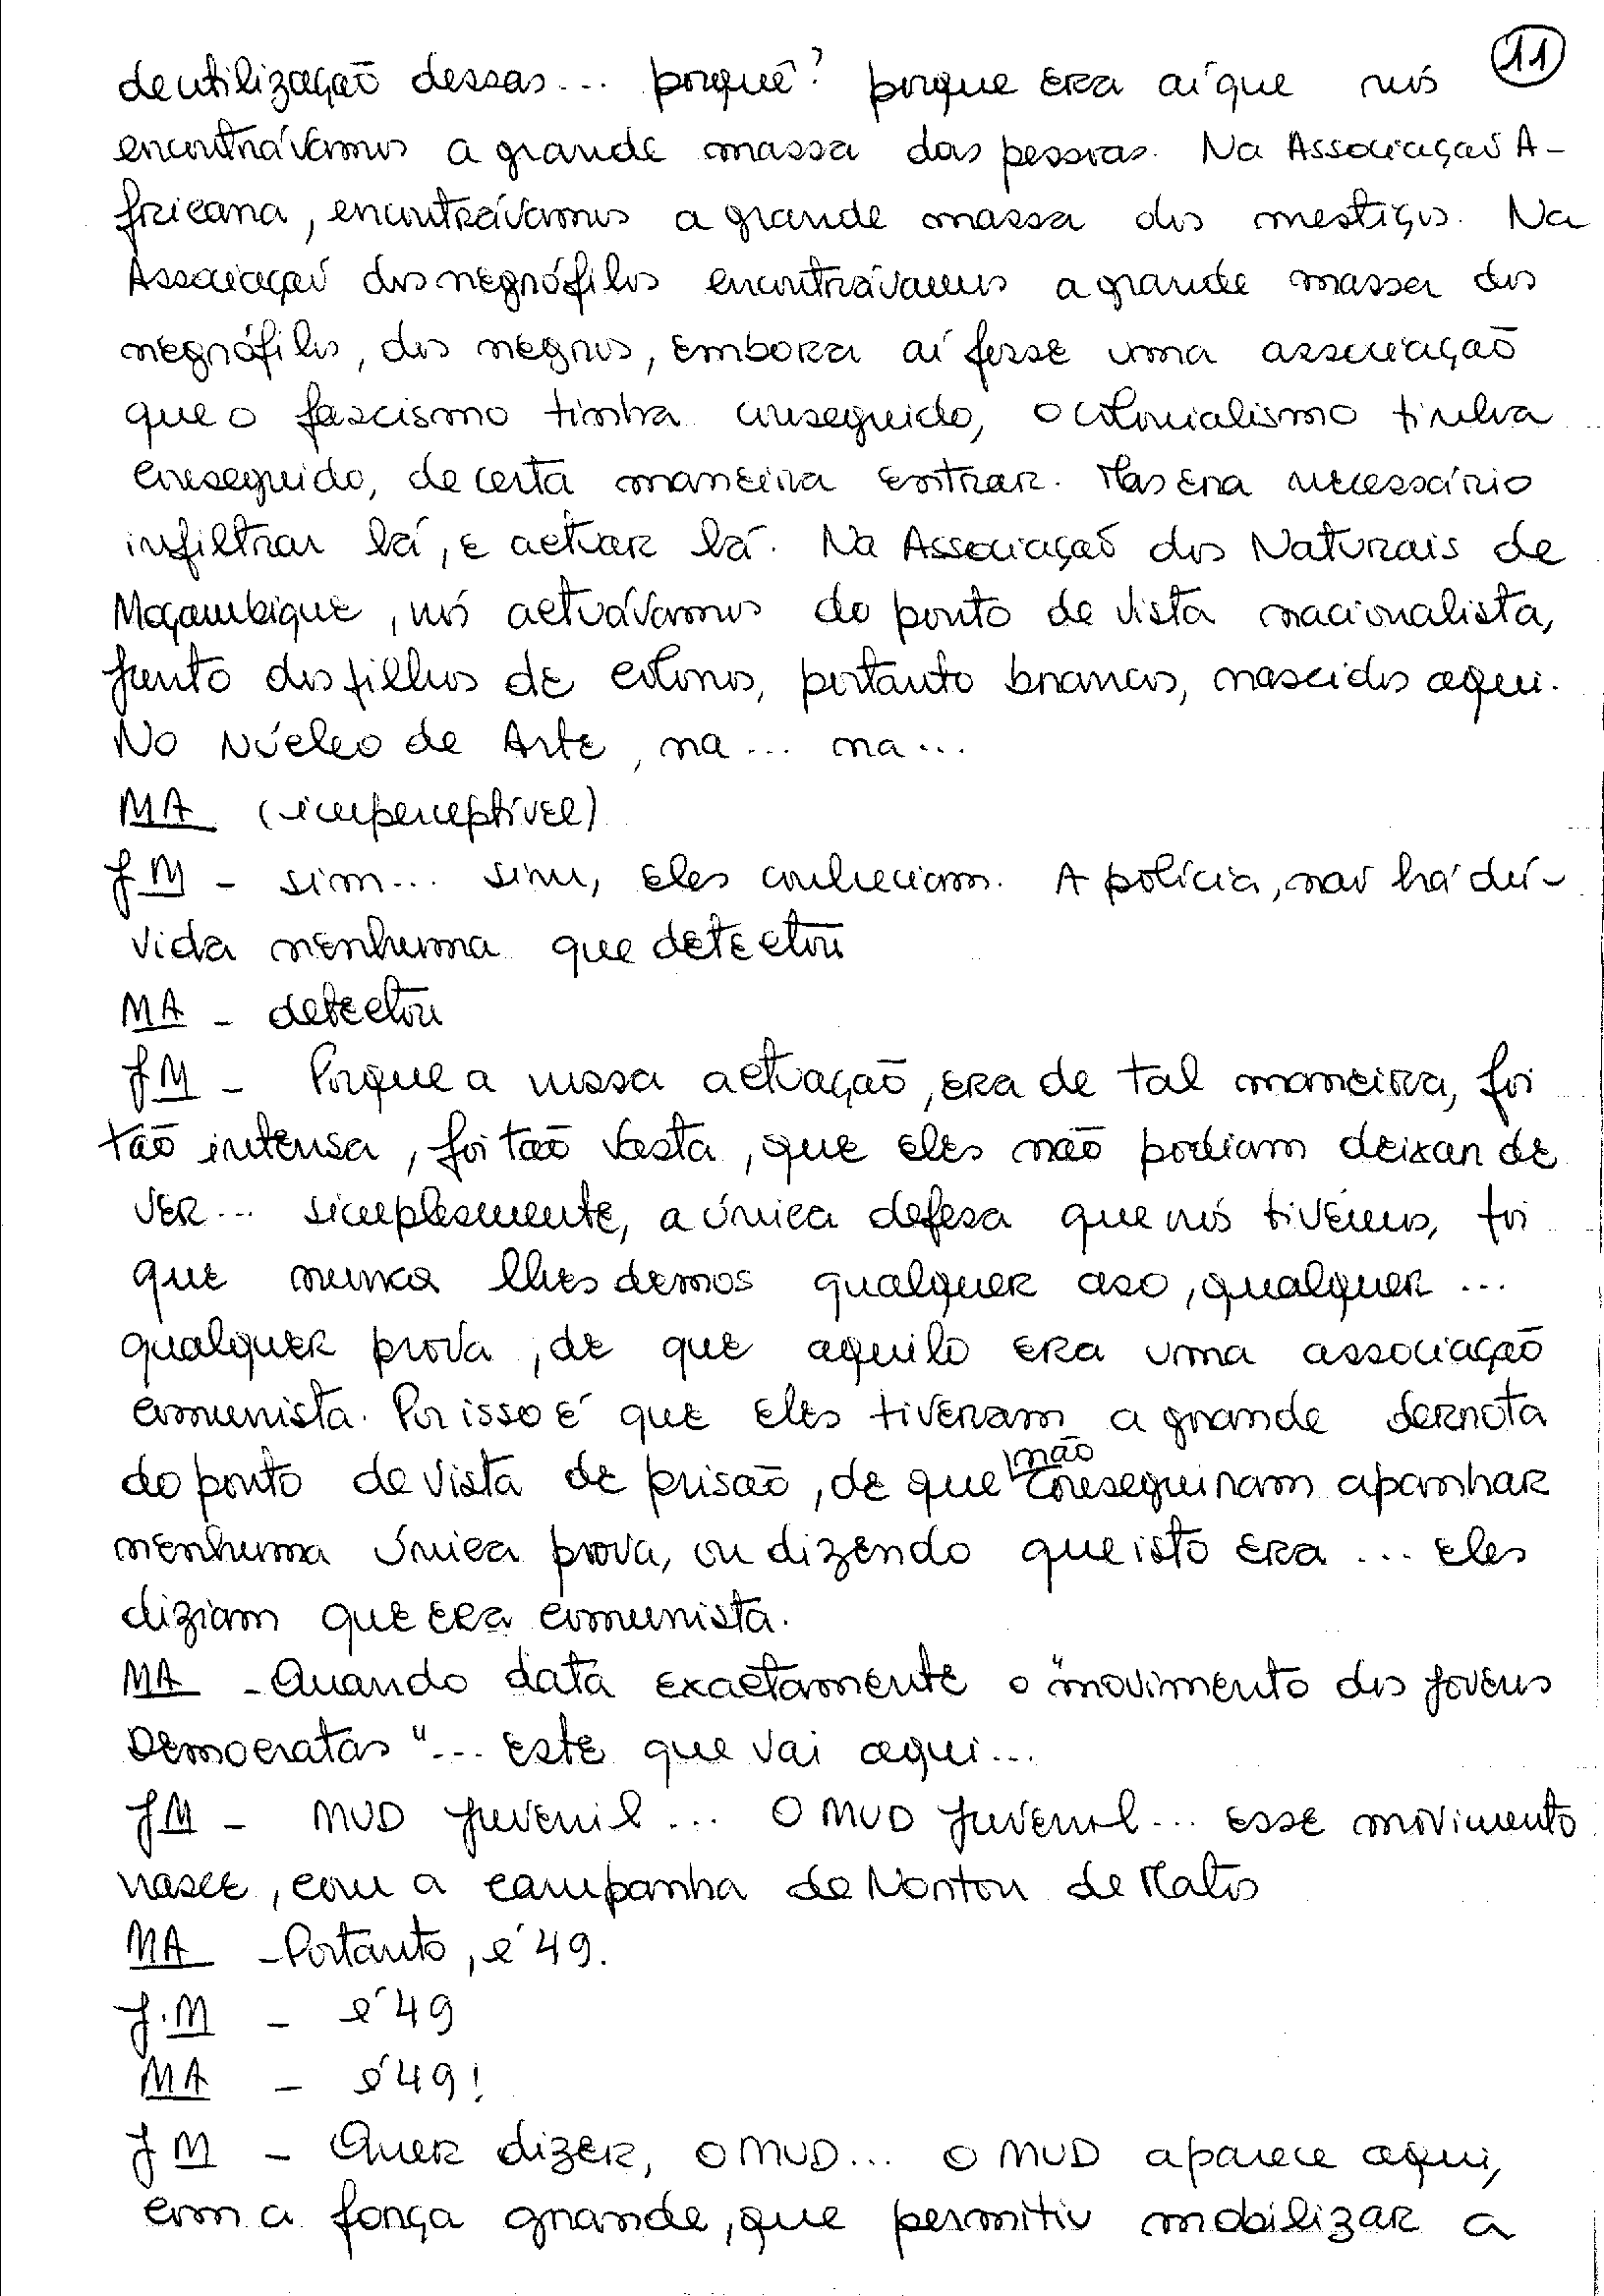 11
de utilização dessas... porquê? porque era aí que nós
encontrávamos a grande massa das pessoas. Na Associação A-
fricana, encontrávamos a grande massa dos mestiços. Na
Associação dos negrófilos encontrávamos a grande massa dos
negrófilos, dos negros, embora aí fosse uma associação
que o fascismo tinha conseguido, o colonialismo tinha
conseguido, de certa maneira entrar. Mas era necessário
infiltrar lá, e actuar lá. Na Associação dos Naturais de
Moçambique, nós actuávamos do ponto de vista nacionalista,
junto dos filhos de colonos, portanto brancos, nascidos aqui.
No Núcleo de Arte, na... na...
MA (imperceptível)
JM - sim... sim, eles conheciam. A polícia, não há dú-
vida nenhuma que detectou
MA - detectou
JM - Porque a nossa actuação, era de tal maneira, foi
tão intensa, foi tão vasta, que eles não podiam deixar de
ver... simplesmente, a única defesa que nós tivémos, foi
que nunca lhes demos qualquer aso, qualquer...
qualquer prova, de que aquilo era uma associação
comunista. Por isso é que eles tiveram a grande derrota
do ponto de vista de prisão, de que não conseguiram apanhar
nenhuma única prova, ou dizendo que isto era... eles
diziam que era comunista.
MA - Quando data exactamente o "movimento dos jovens
Democratas"... este que vai aqui...
JM - MUD juvenil... O MUD juvenil... esse movimento
nasce, com a campanha de Norton de Matos
MA - Portanto, é 49.
J.M - é 49
MA - é 49!
JM - Quer dizer, o MUD... o MUD aparece aqui,
com a força grande, que permitiu mobilizar a